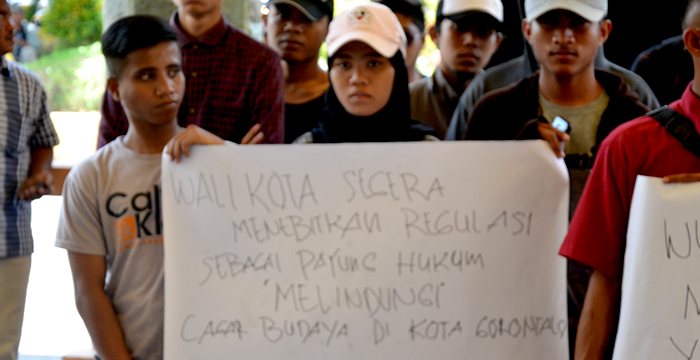 WALI KOTA SEGERA
MENEBITKAN REGULASI
SEBAGAI PAYUNG HUKUM
"MELINDUNGI"
CAGAR BUDAYA DI KOTA GORONTALO